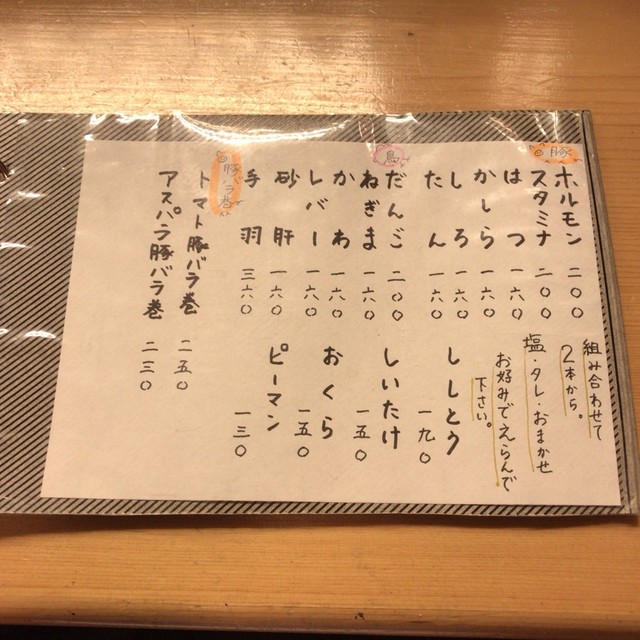 豚
ホルモン 二〇〇
スタミナ 二〇〇
はつ 一六〇
かしら 一六〇
しろ 一六〇
たん 一六〇
鳥
だんご 二〇〇
ねぎま 一六〇
かわ 一六〇
レバー 一六〇
砂肝 一六〇
手羽 三六〇
豚バラ巻
トマト豚バラ巻 二五〇
アスパラ豚バラ巻 二三〇
組み合わせて
2本から。
塩・タレ・おまかせ
お好みでえらんで
下さい。
ししとう 一九〇
しいたけ 一五〇
おくら 一五〇
ピーマン 一三〇